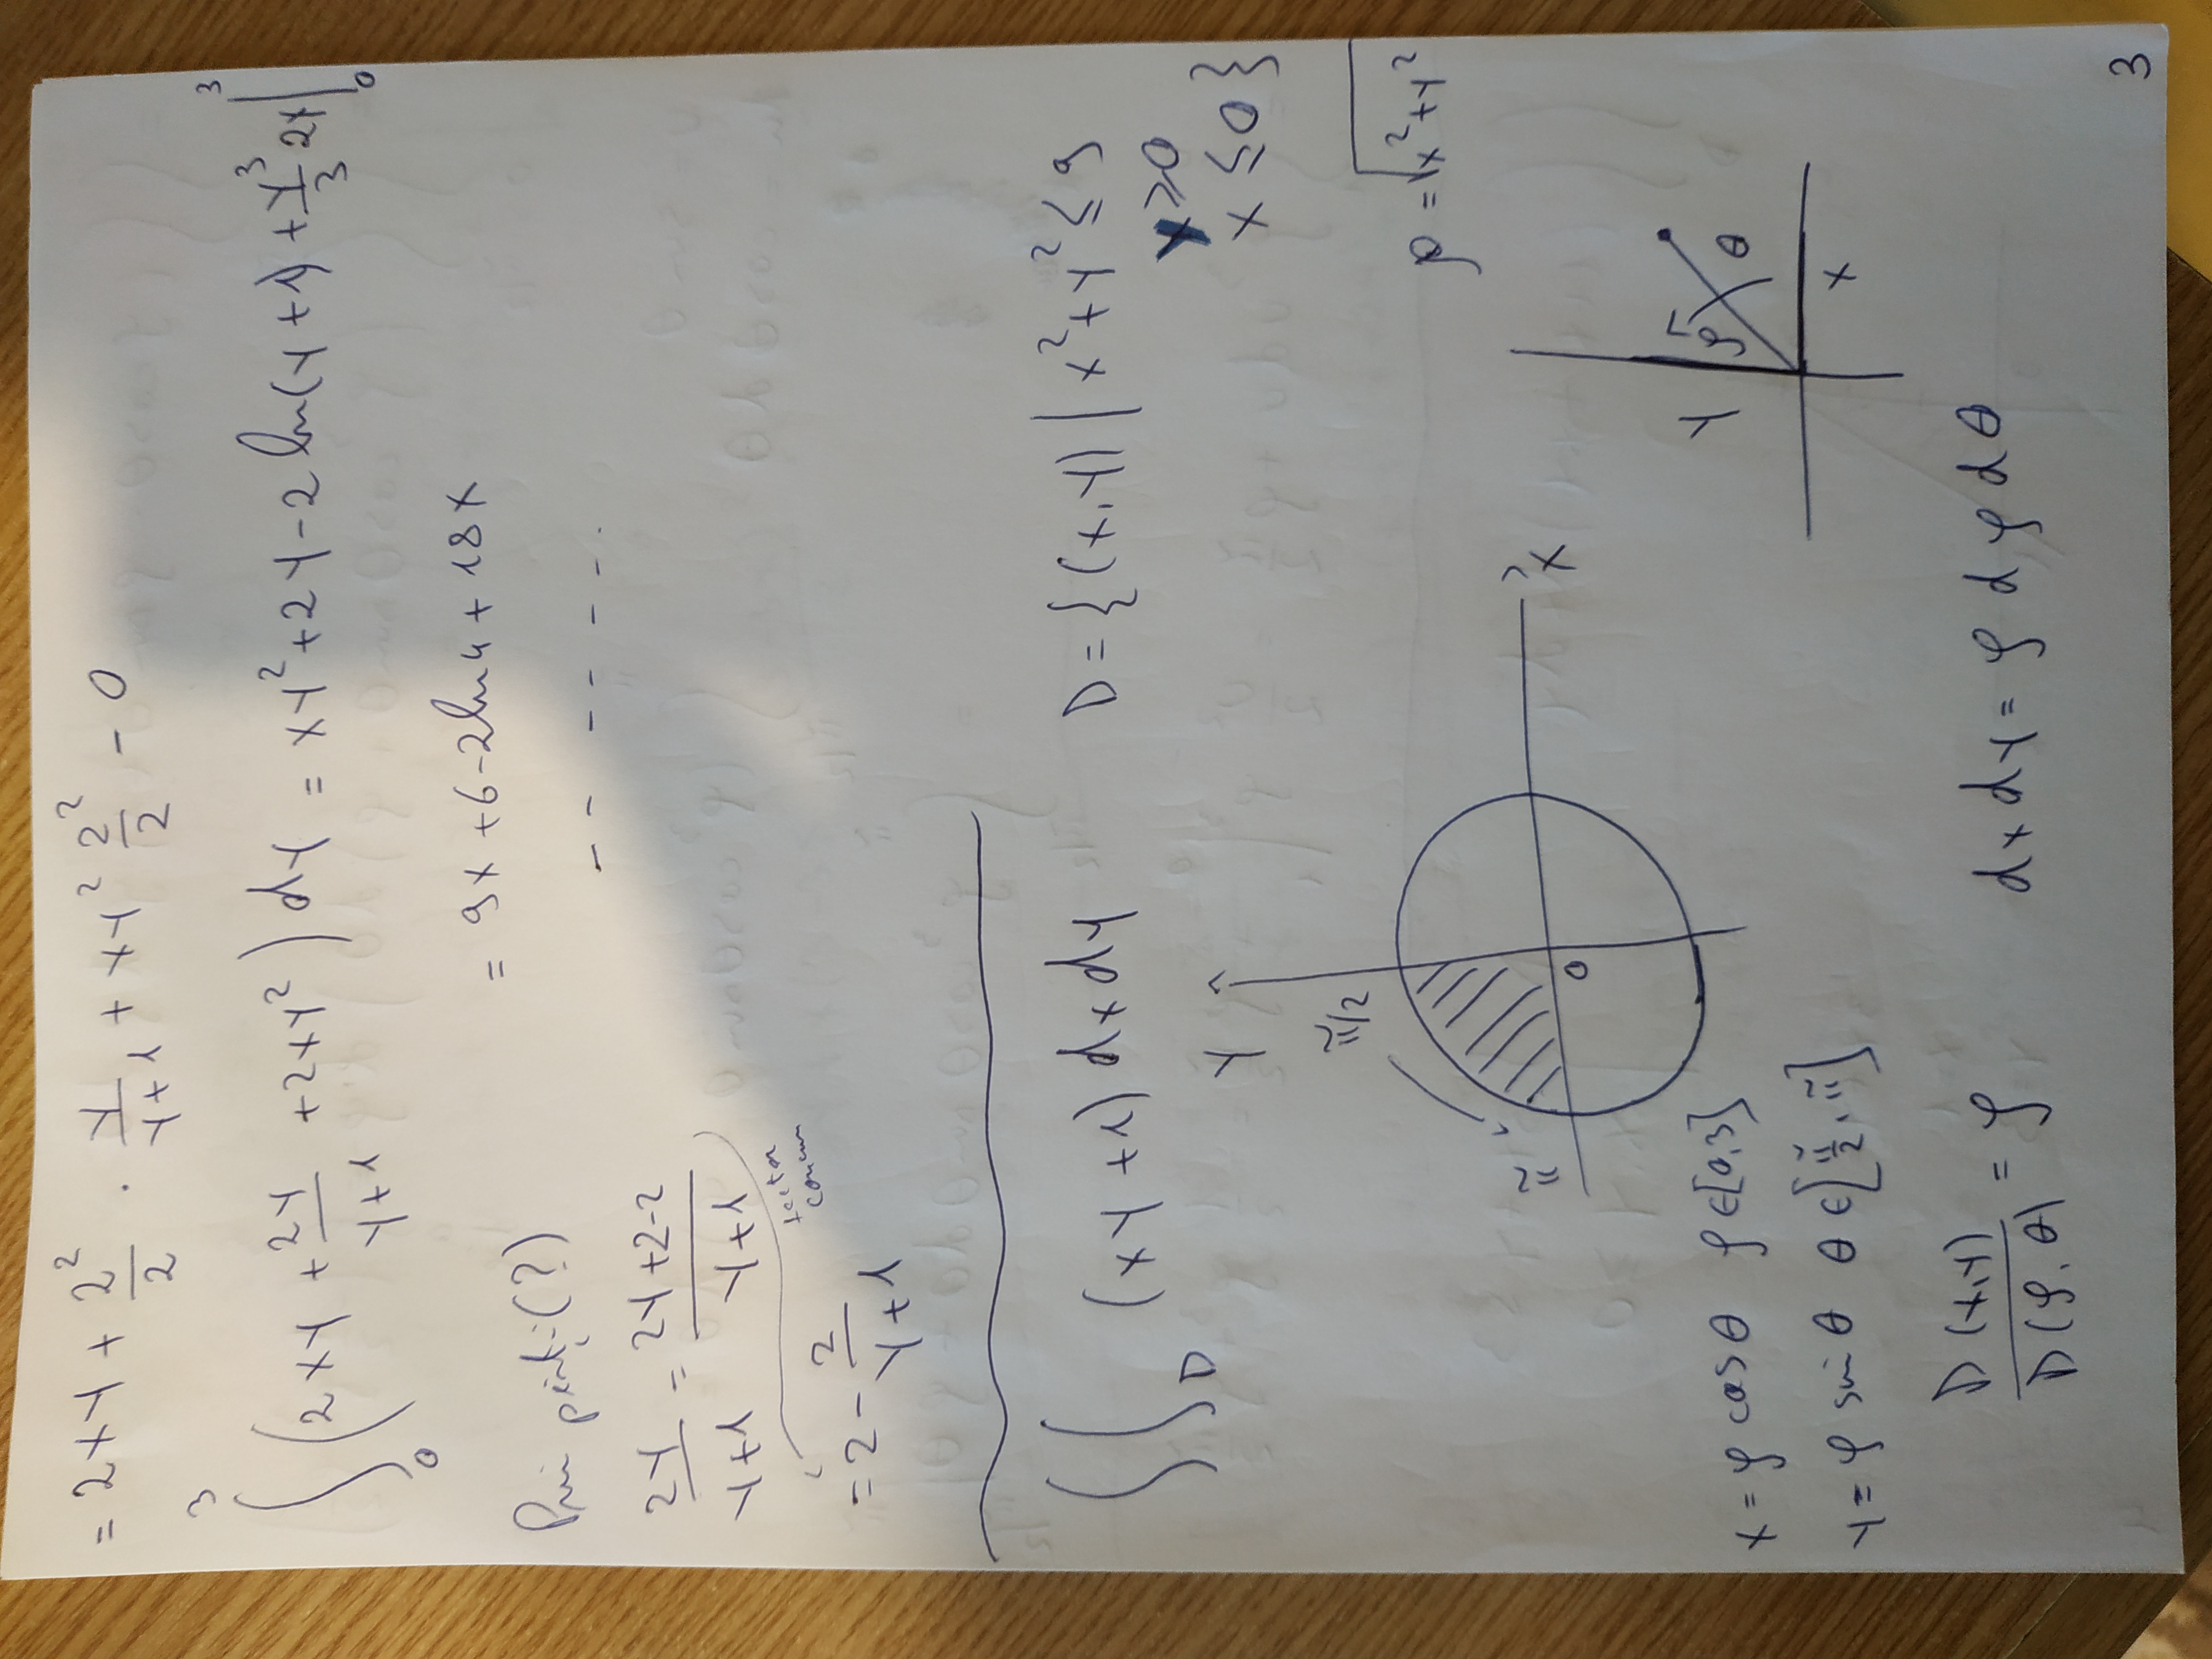 = 2xy + 2²/2 · y/(y+1) + xy² 2²/2 - 0
∫₀³ (2xy + 2y/(y+1) + 2xy²) dy = xy² + 2y - 2 ln(y+1) + y³/3 2x |₀³
= 9x + 6 - 2ln4 + 18x
Prin părți (?)
-- -- -- -.
2y/(y+1) = (2y+2-2)/(y+1)
= 2 - 2/(y+1)
∬_D (xy+1) dx dy D = {(x,y) | x²+y² ≤ 9
y ≥ 0
x ≤ 0}
Y
π/2
ρ = √(x²+y²)
π
0
X
Y ρ θ
X
x = ρ cos θ ρ ∈ [0,3]
y = ρ sin θ θ ∈ [π/2, π]
D(x,y)/D(ρ,θ) = ρ dx dy = ρ dρ dθ
3